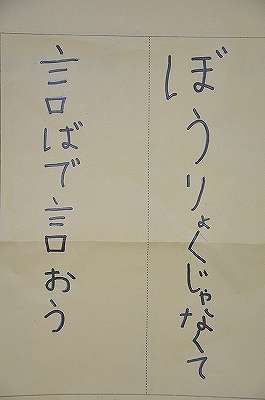 ぼうりょくじゃなくて
言ばで言おう